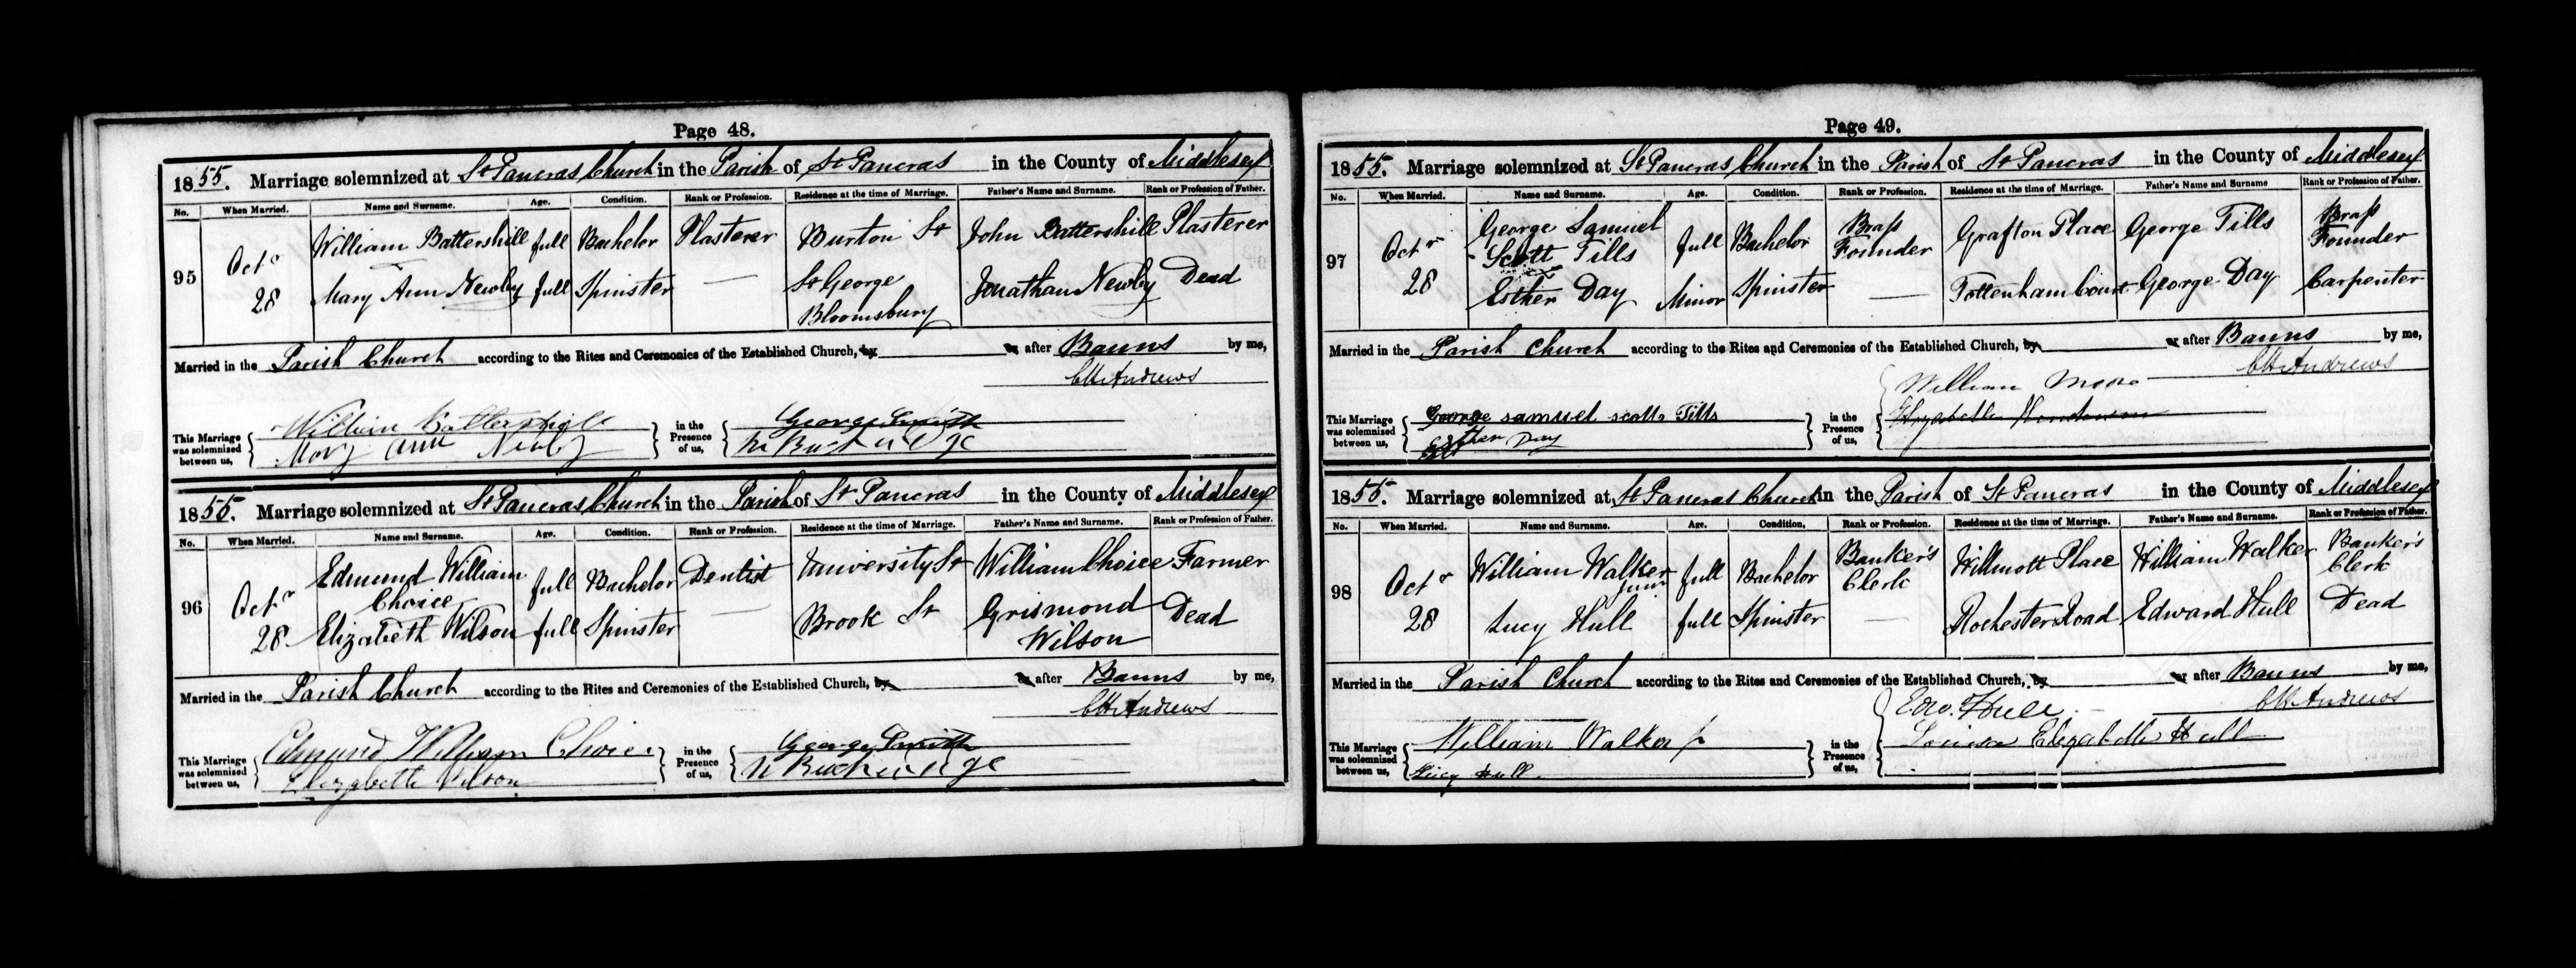 Page 48.
1855. Marriage solemnized at St Pancras Church in the Parish of St Pancras in the County of Middlesex
No. When Married. Name and Surname. Age. Condition. Rank or Profession. Residence at the time of Marriage. Father's Name and Surname. Rank or Profession of Father.
95 Octr 28 William Battershill full Bachelor Plasterer Burton St John Battershill Plasterer
Mary Ann Newby full Spinster — St George Bloomsbury Jonathan Newby Dead
Married in the Parish Church according to the Rites and Ceremonies of the Established Church, by or after Banns by me,
CH Andrews
This Marriage was solemnized between us, William Battershill
Mary Ann Newby
in the Presence of us, George Smith
96
1855. Marriage solemnized at St Pancras Church in the Parish of St Pancras in the County of Middlesex
No. When Married. Name and Surname. Age. Condition. Rank or Profession. Residence at the time of Marriage. Father's Name and Surname. Rank or Profession of Father.
Octr 28 Edmund William Choice full Bachelor Dentist University St William Choice Farmer
Elizabeth Wilson full Spinster — Brook St Grismond Wilson Dead
Married in the Parish Church according to the Rites and Ceremonies of the Established Church, by or after Banns by me,
CH Andrews
This Marriage was solemnized between us, Edmund William Choice
Elizabeth Wilson
in the Presence of us, George Smith
Page 49.
1855. Marriage solemnized at St Pancras Church in the Parish of St Pancras in the County of Middlesex
No. When Married. Name and Surname. Age. Condition. Rank or Profession. Residence at the time of Marriage. Father's Name and Surname Rank or Profession of Father.
97 Octr 28 George Samuel Scott Tills full Bachelor Brass Founder Grafton Place George Tills Brass Founder
Esther Day Minor Spinster — Tottenham Court George Day Carpenter
Married in the Parish Church according to the Rites and Ceremonies of the Established Church, by or after Banns by me,
CH Andrews
This Marriage was solemnized between us, George samuel scott Tills
Esther Day
in the Presence of us, William Moore
Elizabeth Henderson
1855. Marriage solemnized at St Pancras Church in the Parish of St Pancras in the County of Middlesex
No. When Married. Name and Surname. Age. Condition. Rank or Profession. Residence at the time of Marriage. Father's Name and Surname. Rank or Profession of Father.
98 Octr 28 William Walker Junr full Bachelor Banker's Clerk Willmott Place William Walker Banker's Clerk
Lucy Hull full Spinster — Rochester Road Edward Hull Dead
Married in the Parish Church according to the Rites and Ceremonies of the Established Church, by or after Banns by me,
CH Andrews
This Marriage was solemnized between us, William Walker Jr
Lucy Hull.
in the Presence of us, Edw. Hull
Louisa Elizabeth Hull